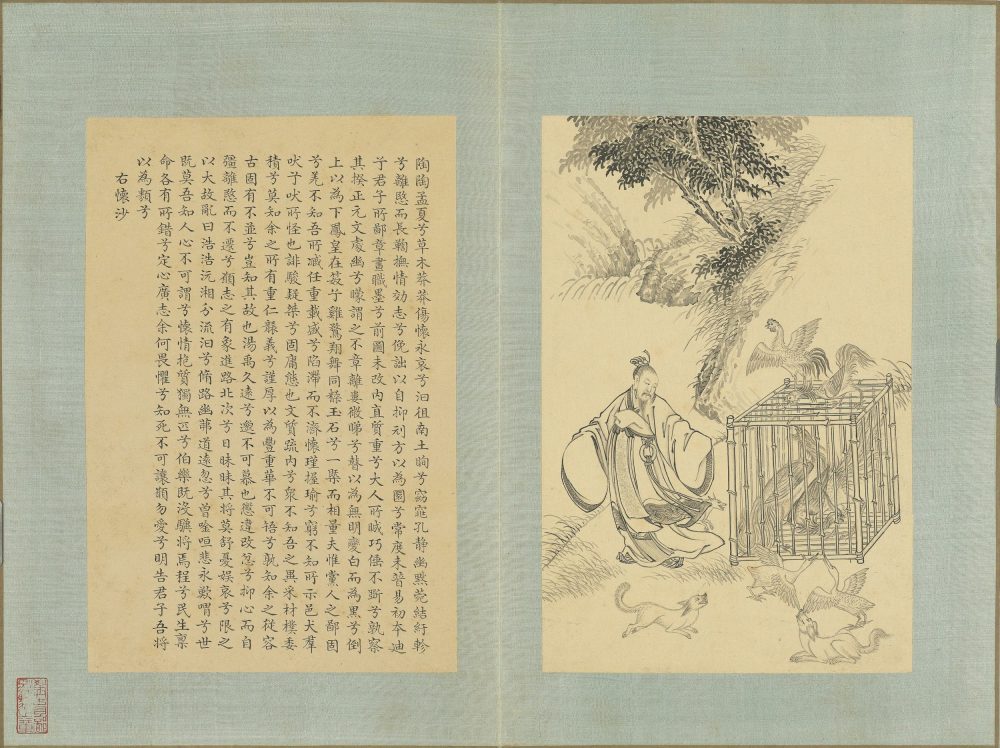 陶陶孟夏兮草木莽莽傷懷永哀兮汩徂南土眴兮窈窕孔静幽默菀結紆軫
兮離愍而長鞠撫情効志兮俛詘以自抑刓方以為圜兮常度未替易初本迪
兮君子所鄙章畫職墨兮前圖未改内直質重兮大人所晠巧倕不斲兮孰察
其揆正元文處幽兮矇謂之不章離婁微睇兮瞽以為無明變白而為黑兮倒
上以為下鳳皇在笯兮雞鶩翔舞同糅玉石兮一槩而相量夫惟黨人之鄙固
兮羌不知吾所臧任重載盛兮陷滯而不濟懷瑾握瑜兮窮不知所示邑犬羣
吠兮吠所怪也誹駿疑桀兮固庸態也文質疏内兮衆不知吾之異采材樸委
積兮莫知余之所有重仁襲義兮謹厚以為豐重華不可牾兮孰知余之從容
古固有不並兮豈知其故也湯禹久遠兮邈不可慕也懲違改忿兮抑心而自
彊離愍而不遷兮願志之有象進路北次兮日昧昧其將莫舒憂娱哀兮限之
以大故亂曰浩浩沅湘分流汩兮脩路幽蔽道遠忽兮曾唫恒悲永歎喟兮世
既莫吾知人心不可謂兮懷情抱質獨無匹兮伯樂既沒驥將焉程兮民生禀
命各有所錯兮定心廣志余何畏懼兮知死不可讓願勿愛兮明告君子吾將
以為類兮
右懷沙